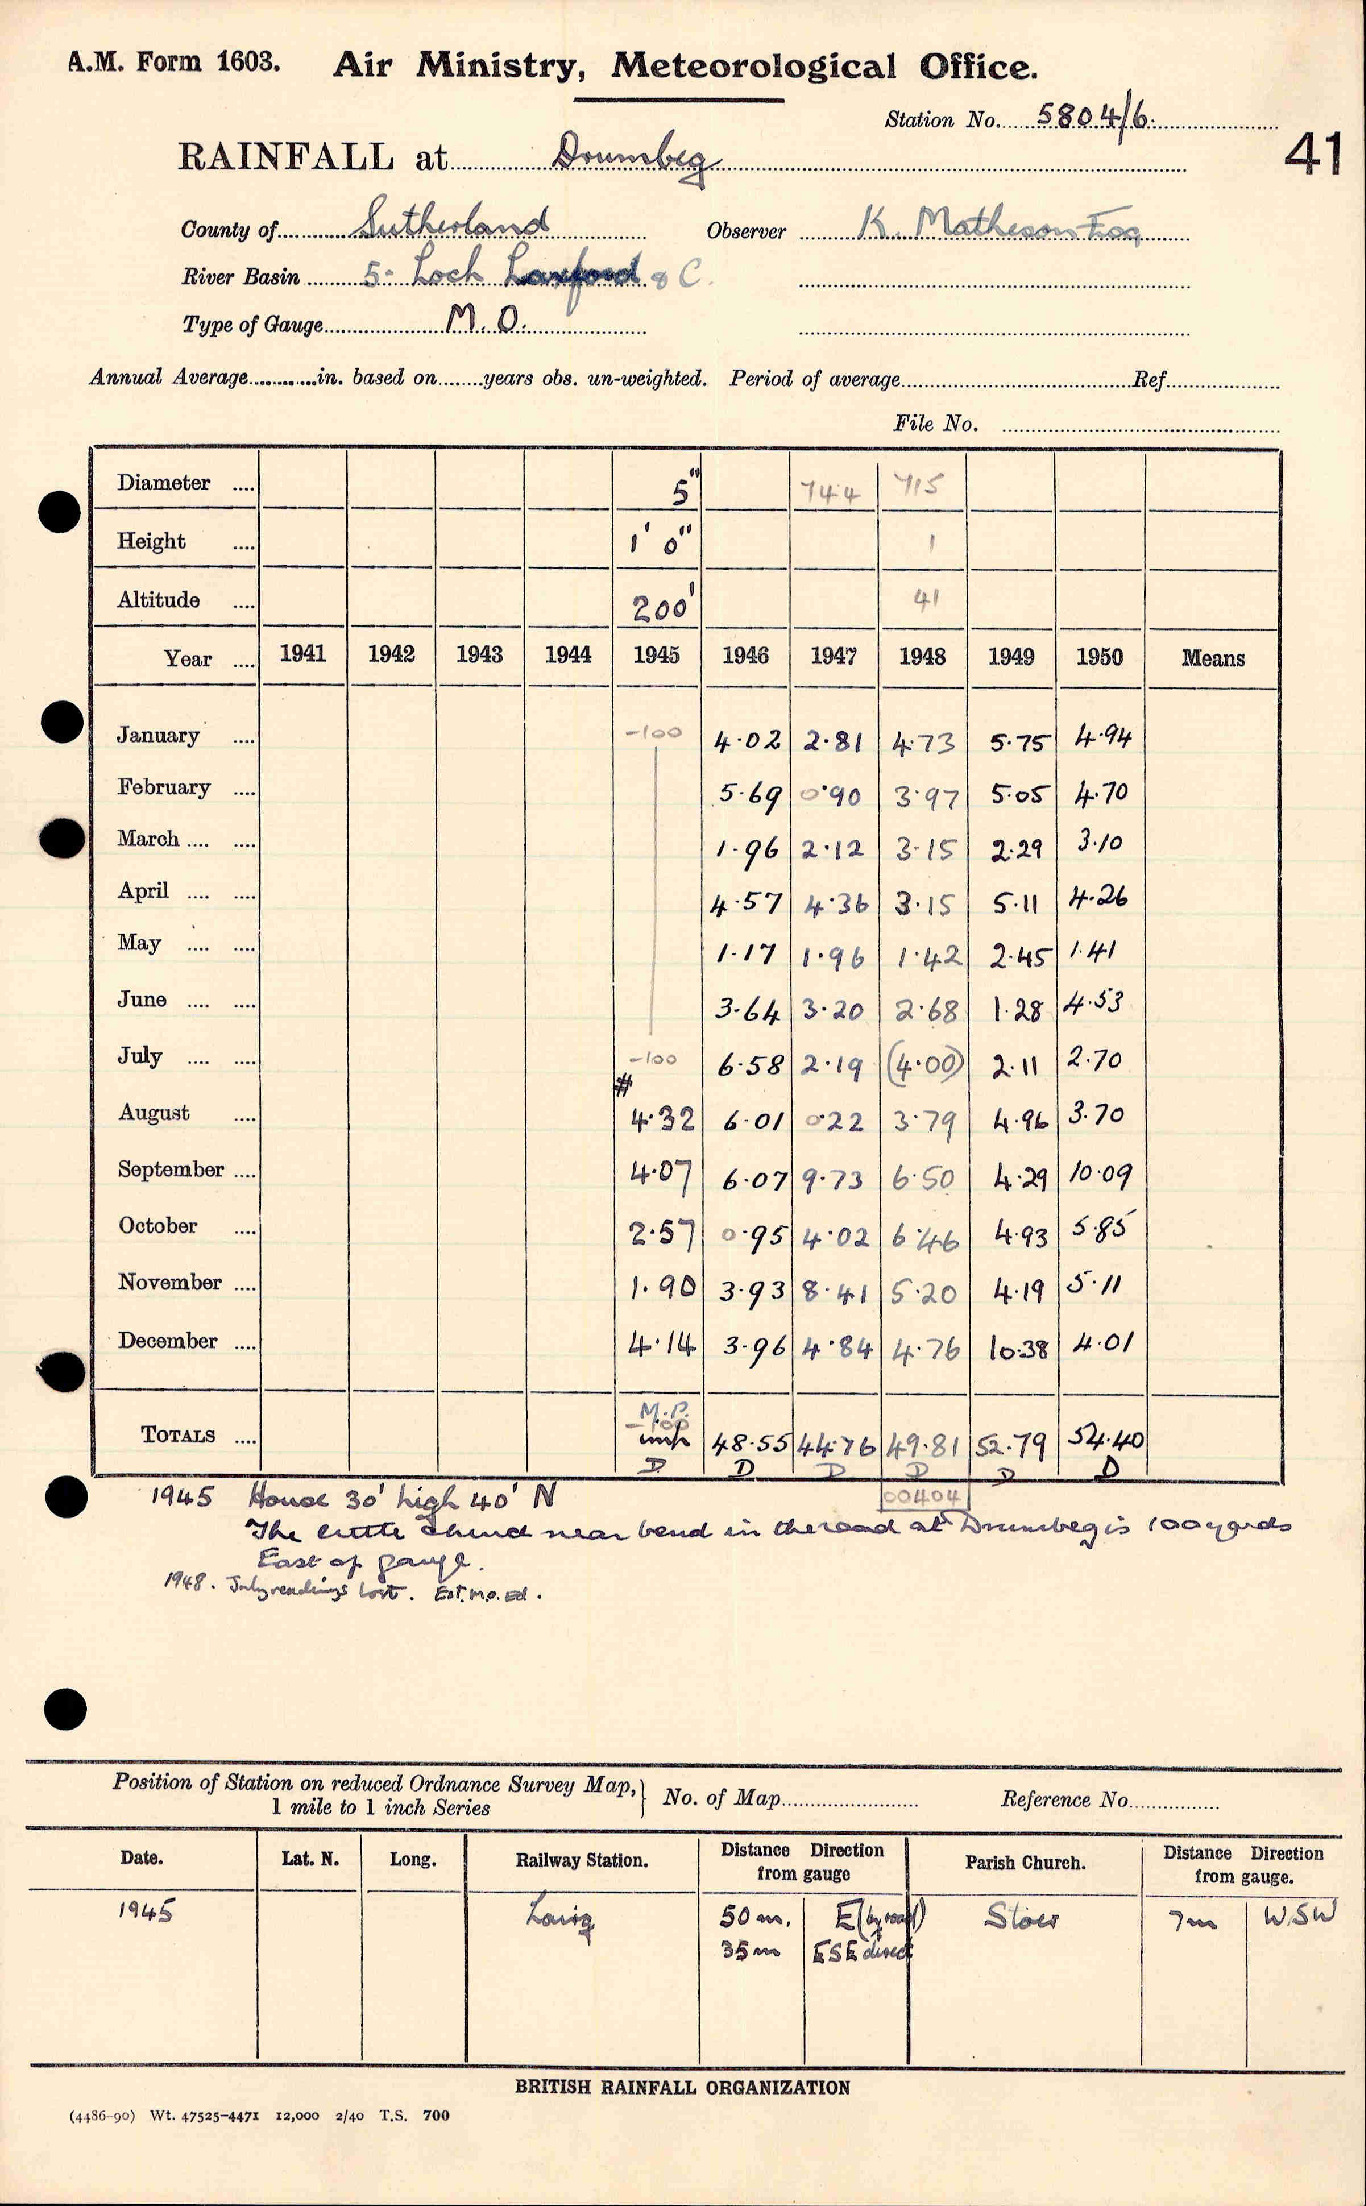 A.M. Form 1603. Air Ministry, Meteorological Office.
Station No. 5804/6.
41
RAINFALL at Drumbeg
County of Sutherland Observer K. Matheson Esq
River Basin 5- Loch Laxford & C.
Type of Gauge M.O.
Annual Average............in. based on........years obs. un-weighted. Period of average Ref.
File No.
Diameter .... 5" 744 715
Height .... 1' 0" 1
Altitude .... 200' 41
Year .... 1941 1942 1943 1944 1945 1946 1947 1948 1949 1950 Means
January .... -100 4.02 2.81 4.73 5.75 4.94
February .... 5.69 0.90 3.97 5.05 4.70
March .... .... 1.96 2.12 3.15 2.29 3.10
April .... .... 4.57 4.36 3.15 5.11 4.26
May .... .... 1.17 1.96 1.42 2.45 1.41
June .... .... 3.64 3.20 2.68 1.28 4.53
July .... .... -100 6.58 2.19 (4.00) 2.11 2.70
#
August .... 4.32 6.01 0.22 3.79 4.96 3.70
September .... 4.07 6.07 9.73 6.50 4.29 10.09
October .... 2.57 0.95 4.02 6.46 4.93 5.85
November .... 1.90 3.93 8.41 5.20 4.19 5.11
December .... 4.14 3.96 4.84 4.76 10.38 4.01
M.P.
-100
TOTALS .... 48.55 44.76 49.81 52.79 54.40
D D D D D D
00404
1945 House 30' high 40' N
The church near bend in the road at Drumbeg is 100 yards
East of gauge.
1948. July readings lost. Est. M.O. Ed.
Position of Station on reduced Ordnance Survey Map, 1 mile to 1 inch Series } No. of Map Reference No.
Date. Lat. N. Long. Railway Station. Distance Direction from gauge Parish Church. Distance Direction from gauge.
1945 Lairg 50 m. E (by road) Stoer 7m WSW
35 m ESE direct
BRITISH RAINFALL ORGANIZATION
(4486-90) Wt. 47525-4471 12,000 2/40 T.S. 700